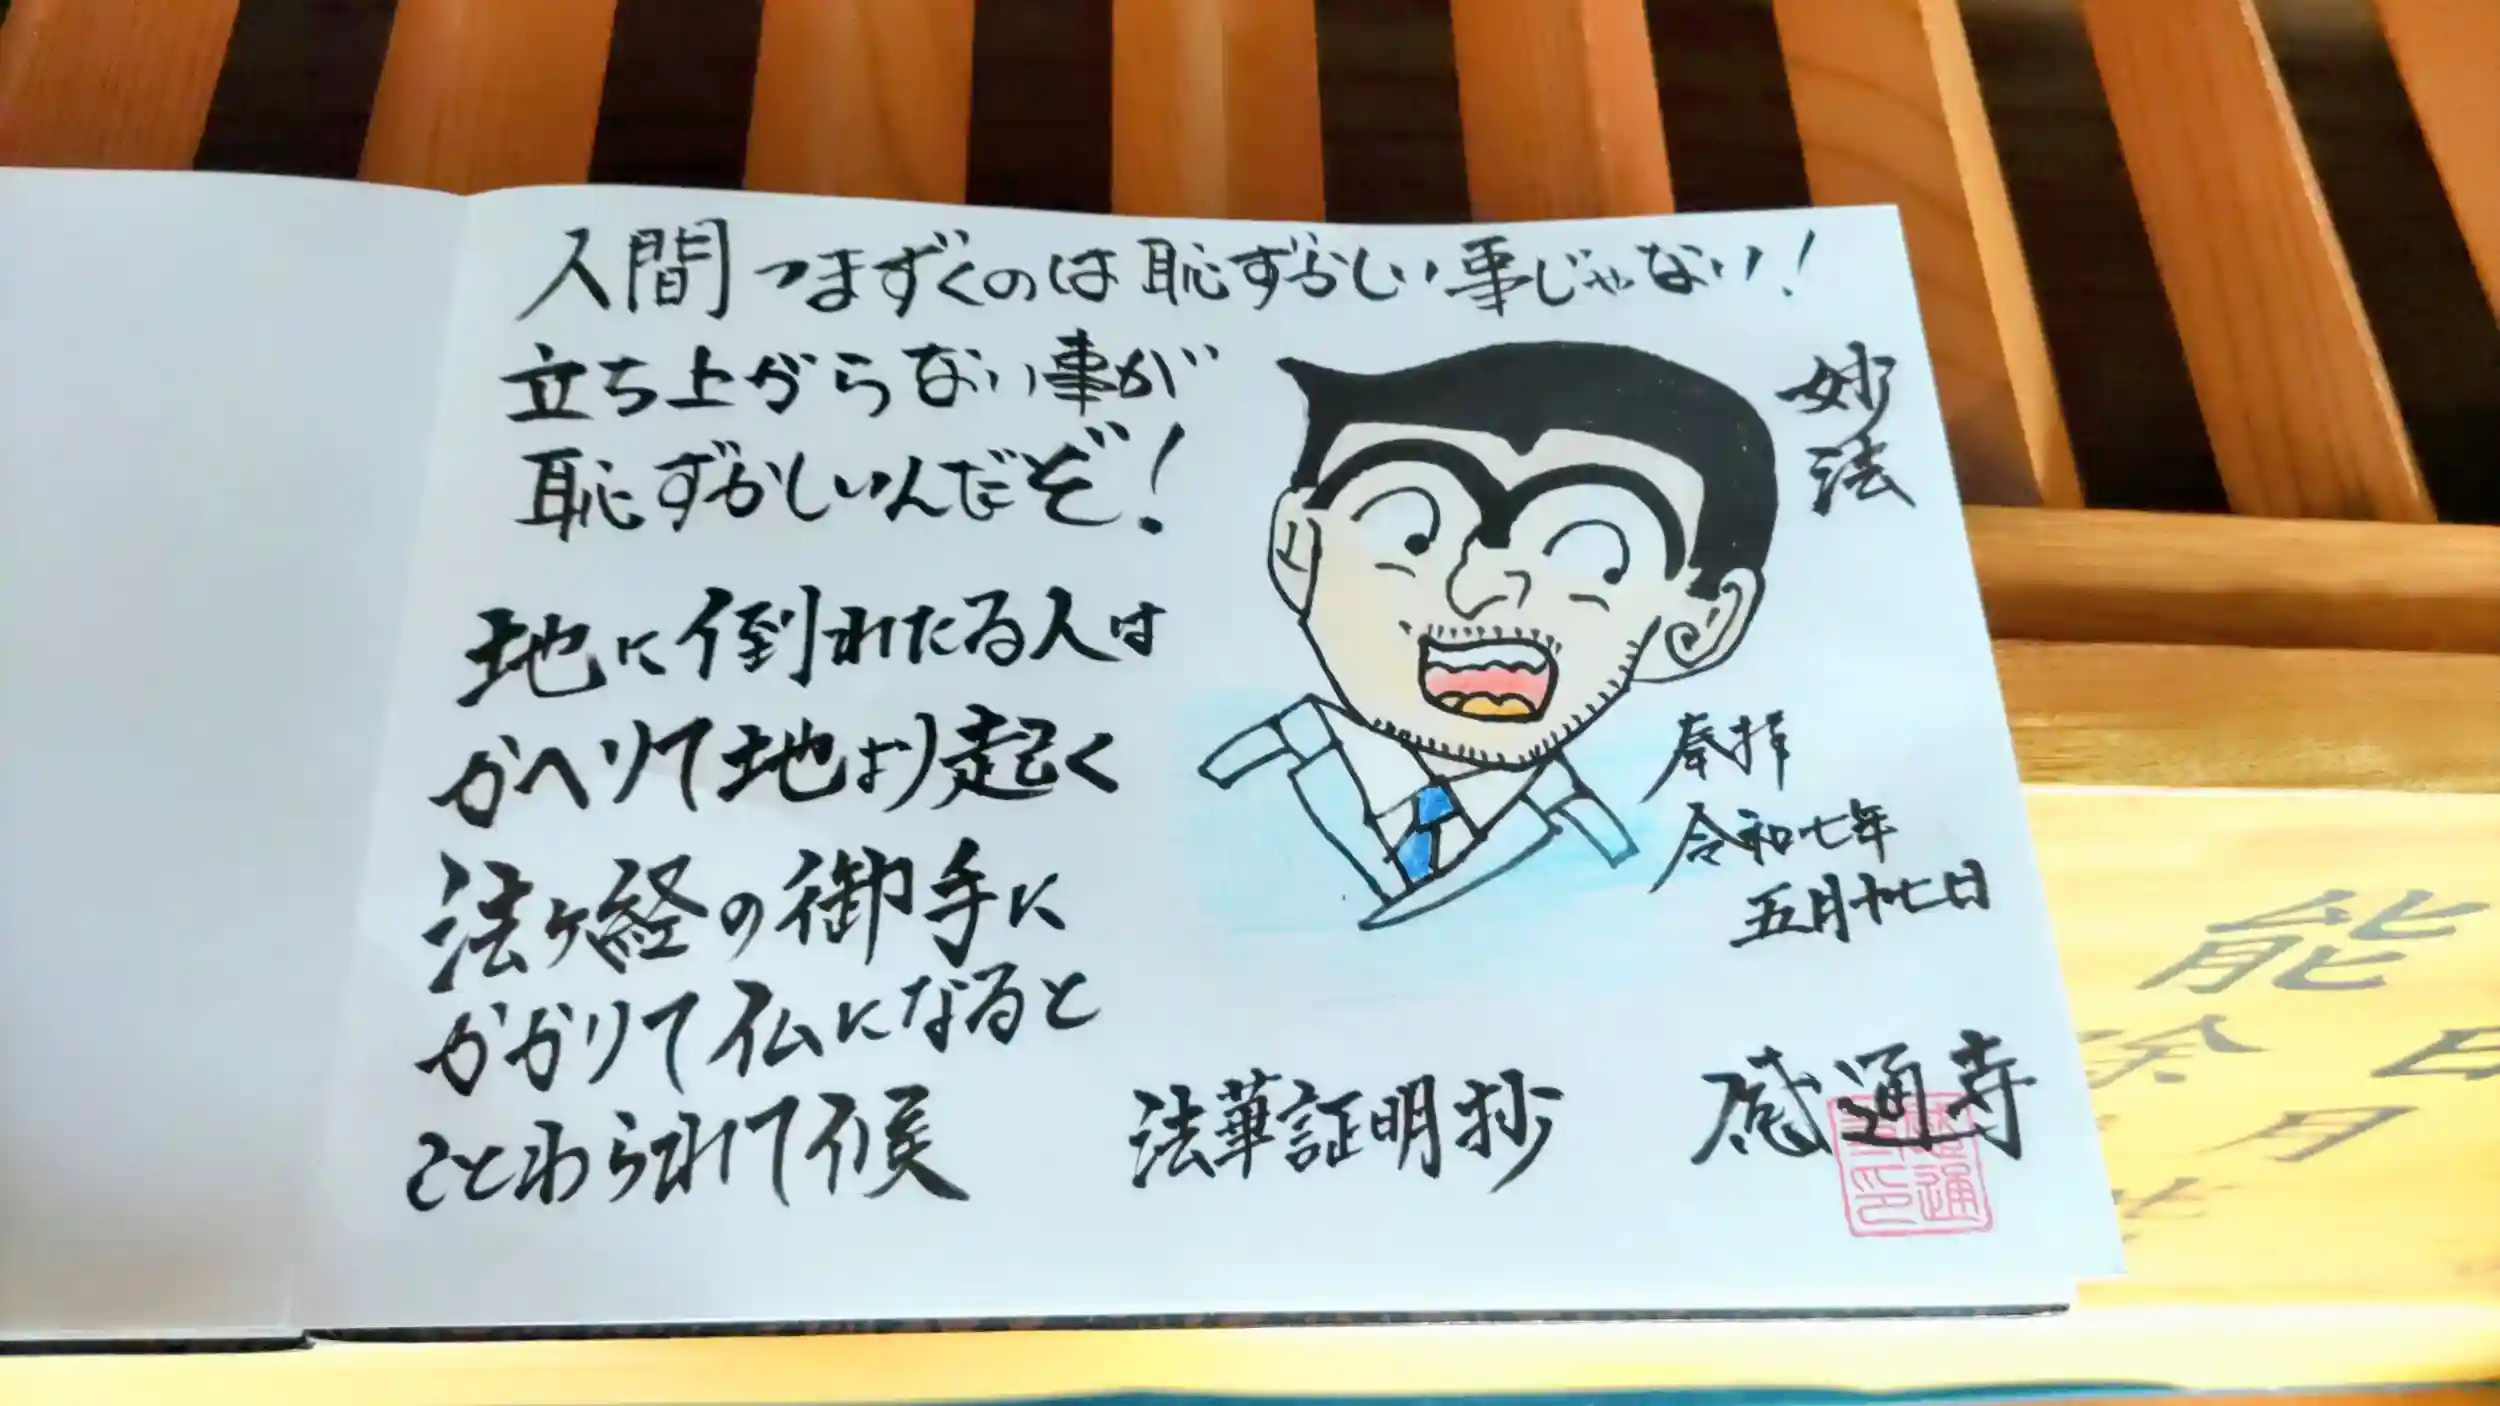 人間つまずくのは恥ずかしい事じゃない!
立ち上がらない事が
恥ずかしいんだぞ!
地に倒れたる人は
かへりて地より起く
法ケ経の御手に
かかりて仏になると
ことわられて候
法華証明抄
妙法
奉拝
令和七年
五月廿七日
感通寺
能
除